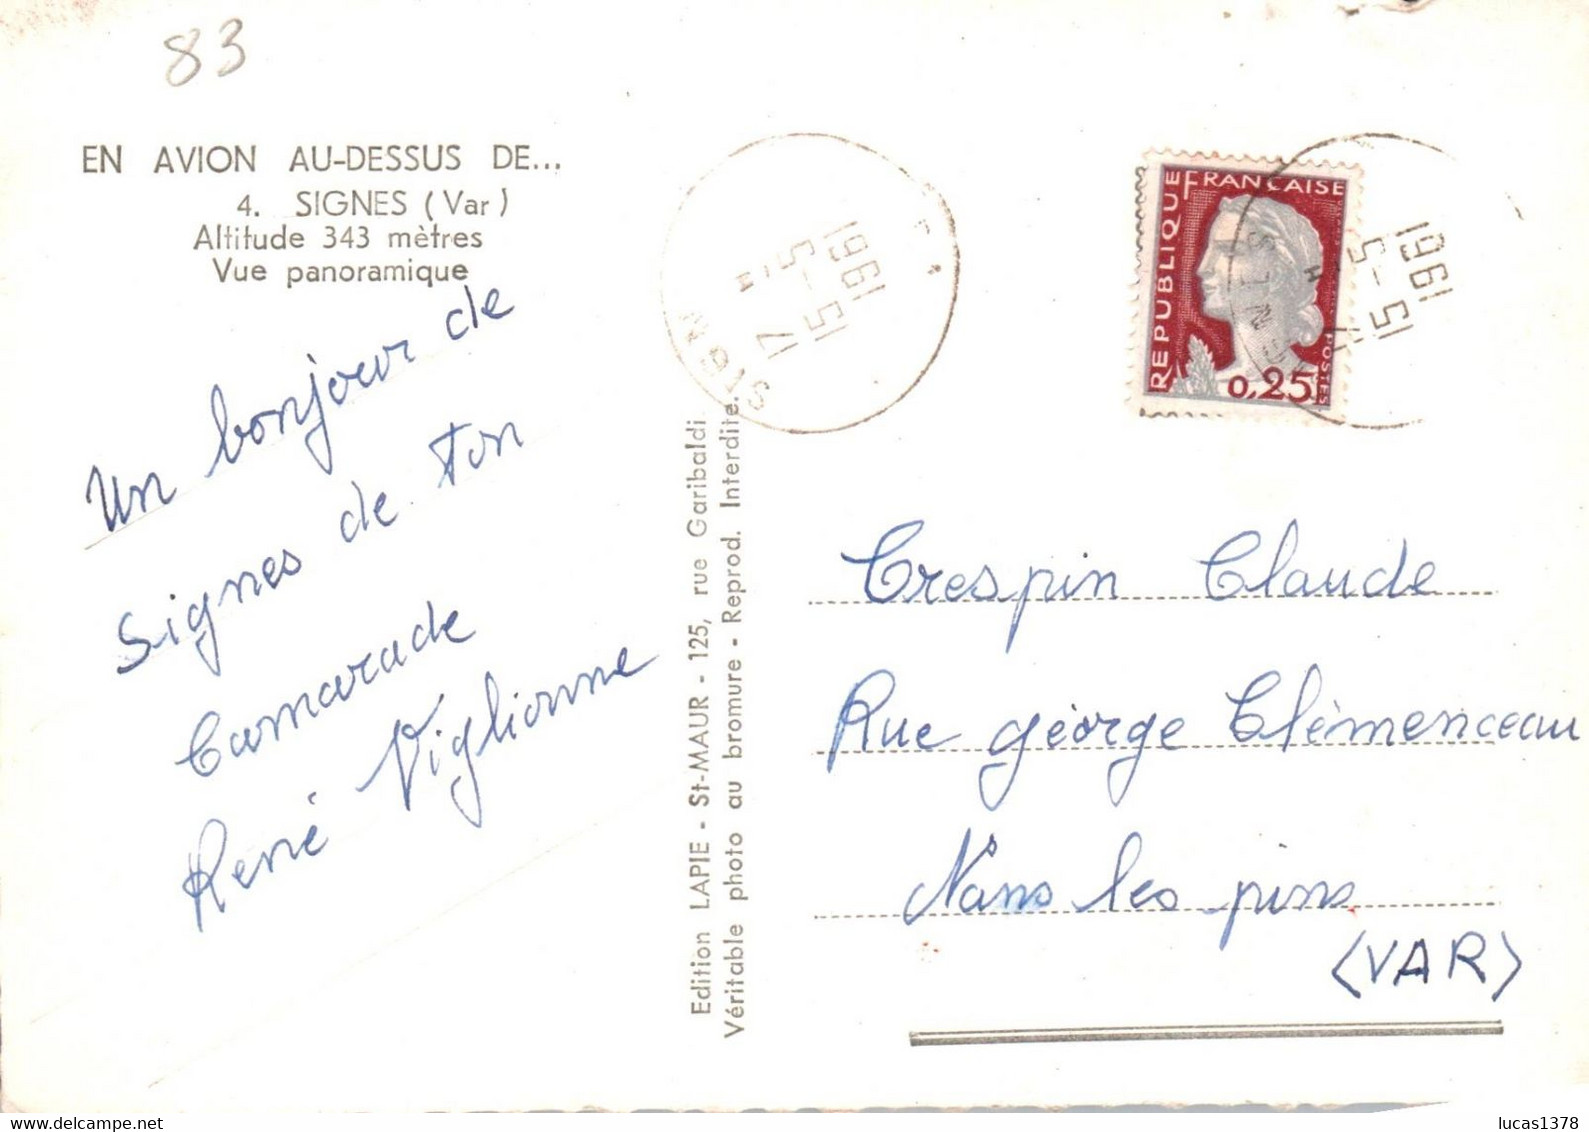 83
EN AVION AU-DESSUS DE...
4. SIGNES (Var)
Altitude 343 mètres
Vue panoramique
Un bonjour de
Signes de ton
Camarade
René Viglionne
Edition LAPIE - St-MAUR - 125, rue Garibaldi
Véritable photo au bromure - Reprod. Interdite.
1961
5-5
17
SIGN
RÉPUBLIQUE FRANÇAISE
POSTES
0,25
1961
5-5
Crespin Claude
Rue géorge Clémenceau
Nans les pins
(VAR)
lucas1378